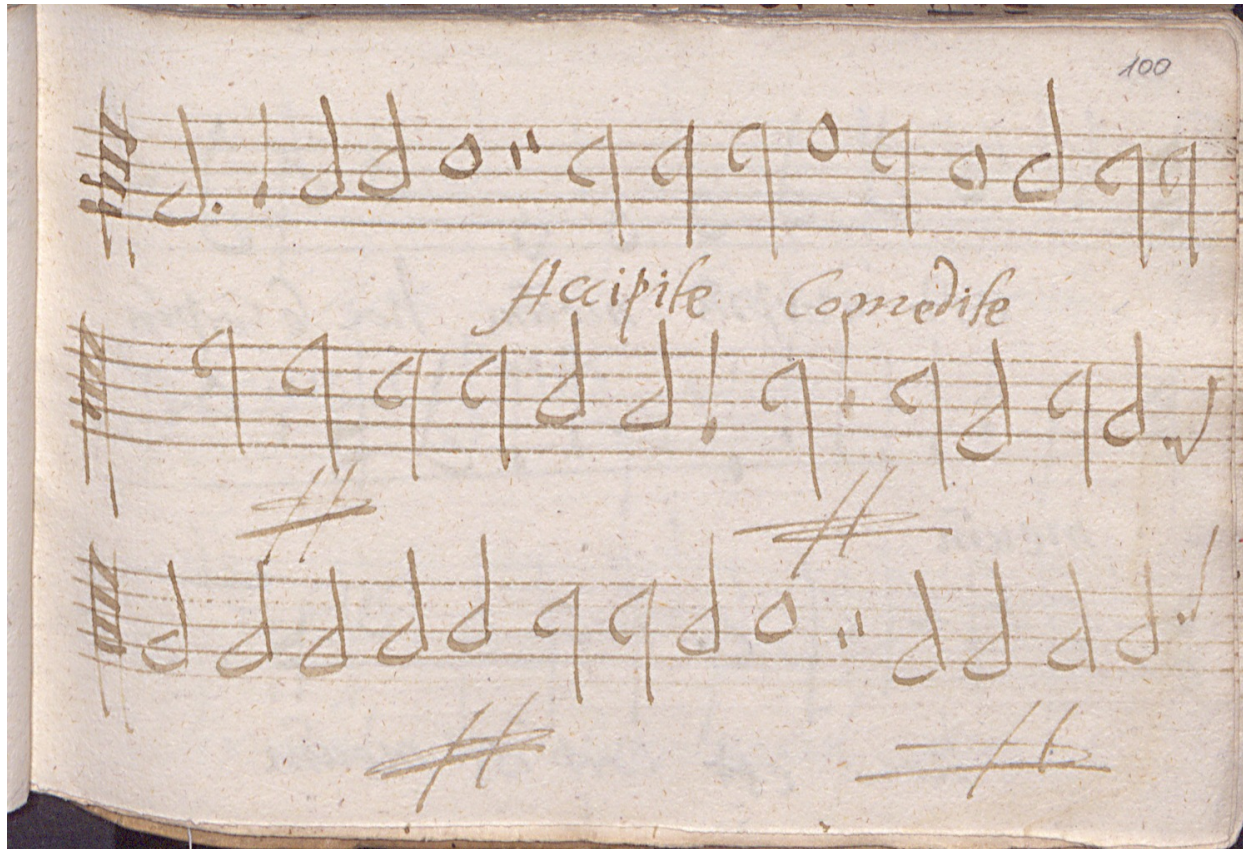 100
Accipite Comedite